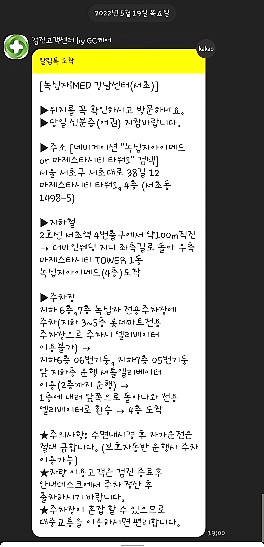 2022년 5월 19일 목요일
검진고객센터 by GC케어
kakao
알림톡 도착
[녹십자iMED 강남센터(서초)]
▶위치를 꼭 확인하시고 방문하세요.
▶당일 신분증(여권) 지참바랍니다.
▶주소 [네비게이션 "녹십자아이메드
or 마제스타시티 타워1" 검색]
서울 서초구 서초대로 38길 12
마제스타시티 타워1, 4층 (서초동
1498-5)
▶지하철
2호선 서초역 4번출구에서 약100m직진
→ 좌측길로 돌아 우측
마제스타시티 TOWER 1동
녹십자아이메드(4층)도착
▶주차장
지하6층,7층 녹십자 전용주차장에
주차(지하 3~5층 롯데마트전용
주차장으로 주차시 엘리베이터
이용불가) →
지하6층 06번기둥, 지하7층 05번기둥
앞 지하층 운행 셔틀엘리베이터
이용(2층까지 운행) →
1층에 내려 앞쪽으로 돌아나와 전용
엘리베이터로 환승 → 4층 도착
★주의사항: 수면내시경 후 자가운전은
절대 금합니다. (보호자동반 운행시 주차
이용가능)
★차량 이용고객은 검진 종료후
안내데스크에서 주차 정산 후
출차하시기 바랍니다.
★주차장이 혼잡 할 수 있으므로
대중교통을 이용하시면 편리합니다.
13:00